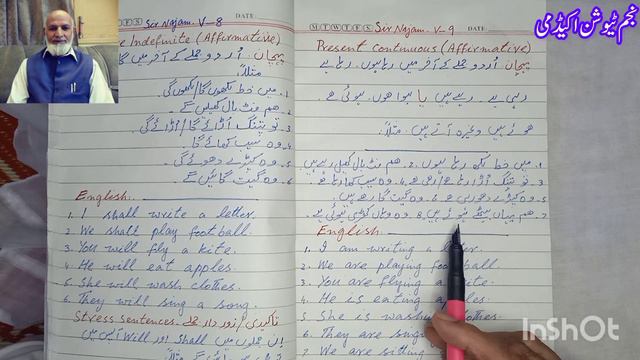 نجم ٹیوشن اکیڈمی
Sir Najam. V-8 DATE:
Indefinite (Affirmative)
پہچان: اُردو جملے کے آخر میں
مثلاً:
1. میں خط لکھوں گا/لکھوں گی۔
2. ہم فٹ بال کھیلیں گے۔
3. تو پتنگ اُڑائے گا/اُڑائے گی۔
4. وہ سیب کھائے گا۔
5. وہ کپڑے دھوئے گی۔
6. وہ گیت گائیں گے۔
English
1. I shall write a letter.
2. We shall play football.
3. You will fly a kite.
4. He will eat apples.
5. She will wash clothes.
6. They will sing a song.
Stress sentences. تاکیدی/زور دار جملے
اِن جملوں میں Will اور Shall آپس میں
MTWTFS Sir Najam. V-9 DATE:
Present Continuous (Affirmative)
پہچان: اُردو جملے کے آخر میں رہا ہوں۔ رہا ہے
رہی ہے۔ رہے ہیں یا ہوا ہوں۔ ہوئی ہے۔
ہوئے ہیں وغیرہ آتے ہیں۔ مثلاً:
1. میں خط لکھ رہا ہوں۔ 2. ہم فٹ بال کھیل رہے ہیں
3. تو پتنگ اُڑا رہا ہے 4. وہ سیب کھا رہا ہے۔
5. وہ کپڑے دھو رہی ہے 6. وہ گیت گا رہے ہیں
7. ہم یہاں بیٹھے ہوئے ہیں 8. وہ وہاں ہوئی ہے
English.
1. I am writing a letter.
2. We are playing football.
3. You are flying a kite.
4. He is eating apples.
5. She is washing clothes.
6. They are
7. We are
InShOt